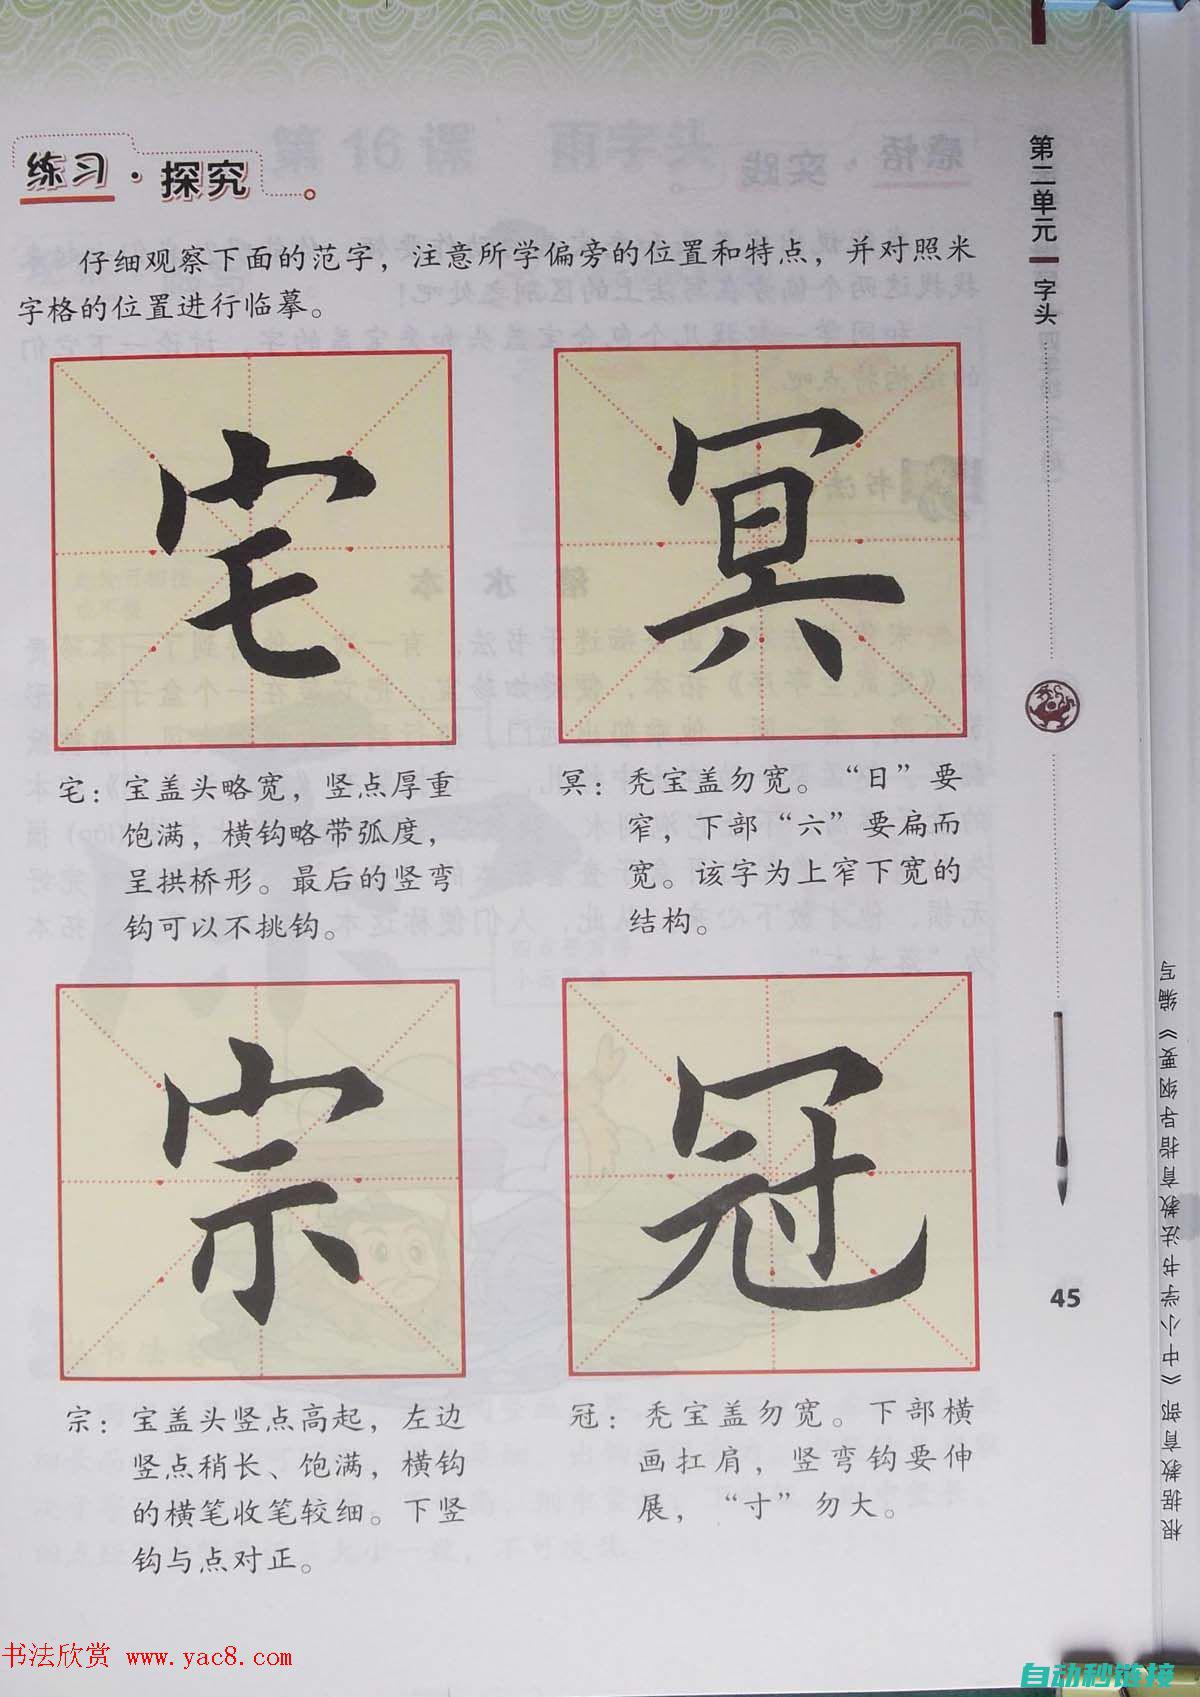 练习·探究
仔细观察下面的范字，注意所学偏旁的位置和特点，并对照米
字格的位置进行临摹。
宅
冥
宅：宝盖头略宽，竖点厚重
饱满，横钩略带弧度，
呈拱桥形。最后的竖弯
钩可以不挑钩。
冥：秃宝盖勿宽。“日”要
窄，下部“六”要扁而
宽。该字为上窄下宽的
结构。
宗
冠
宗：宝盖头竖点高起，左边
竖点稍长、饱满，横钩
的横笔收笔较细。下竖
钩与点对正。
冠：秃宝盖勿宽。下部横
画扛肩，竖弯钩要伸
展，“寸”勿大。
第二单元
字头
45
根据教育部《中小学书法教育指导纲要》编写
书法欣赏 www.yac8.com
自动秒链接